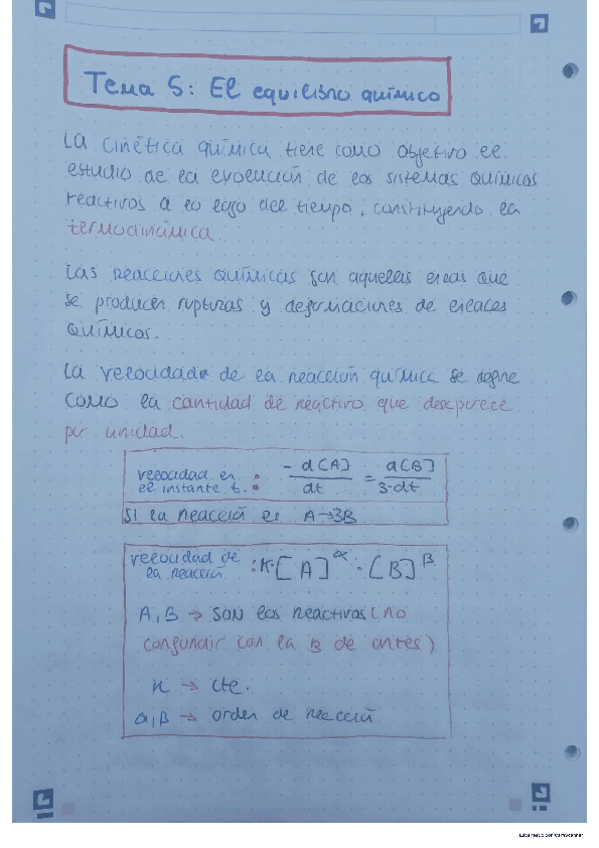 Tema 5: El equilibrio químico
La cinética química tiene como objetivo el
estudio de la evolución de los sistemas químicos
reactivos a lo lago del tiempo, constituyendo la
termodinámica.
Las reacciones químicas son aquellas en las que
se producen rupturas y deformaciones de enlaces
químicos.
La velocidad de la reacción química se define
como la cantidad de reactivo que desaparece
por unidad.
velocidad en el instante t. : -d[A]/dt = d[B]/3·dt
Si la reacción es A→3B
velocidad de la reacción : K·[A]^α · [B]^β
A, B → son los reactivos (no
confundir con la B de antes)
K → cte.
α, β → orden de reacción